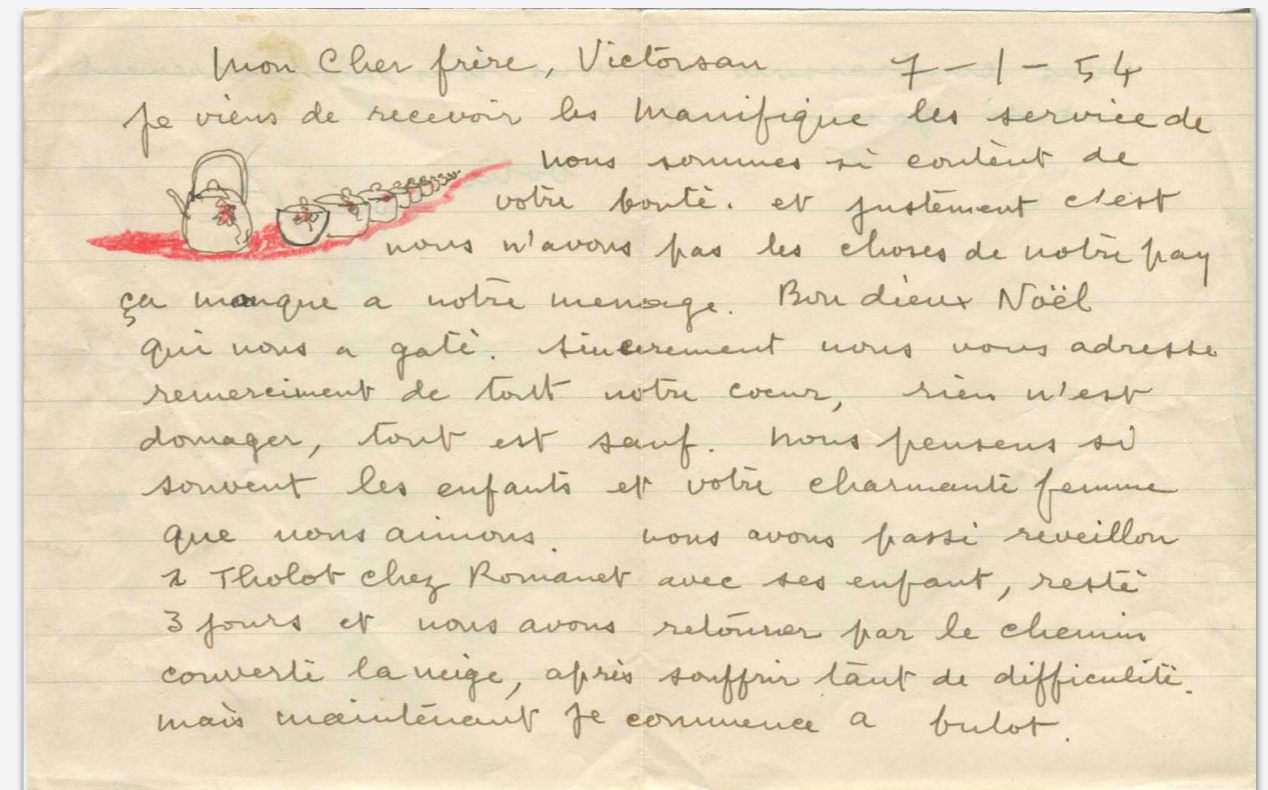 Mon Cher frère, Victorsan 7-1-54
Je viens de recevoir les Manifique les service de
nous sommes si contènt de
votrè bontè. et justèment c'est
nous n'avons pas les choses de notrè pay
ça manque a notrè menage. Bon dieux Noël
qui nous a gatè. Sincerement nous vous adresse
remerciment de tout notre coeur, rien n'est
domager, tout est sauf. nous pensens si
souvent les enfants et votrè charmantè femme
que nous aimons. nous avons passi reveillon
a Tholot chez Romanet avec ses enfant, restè
3 jours et nous avons retourner par le chemin
convertè la neige, après souffrir tant de difficulitè.
mais maintènant je commence a bulot.